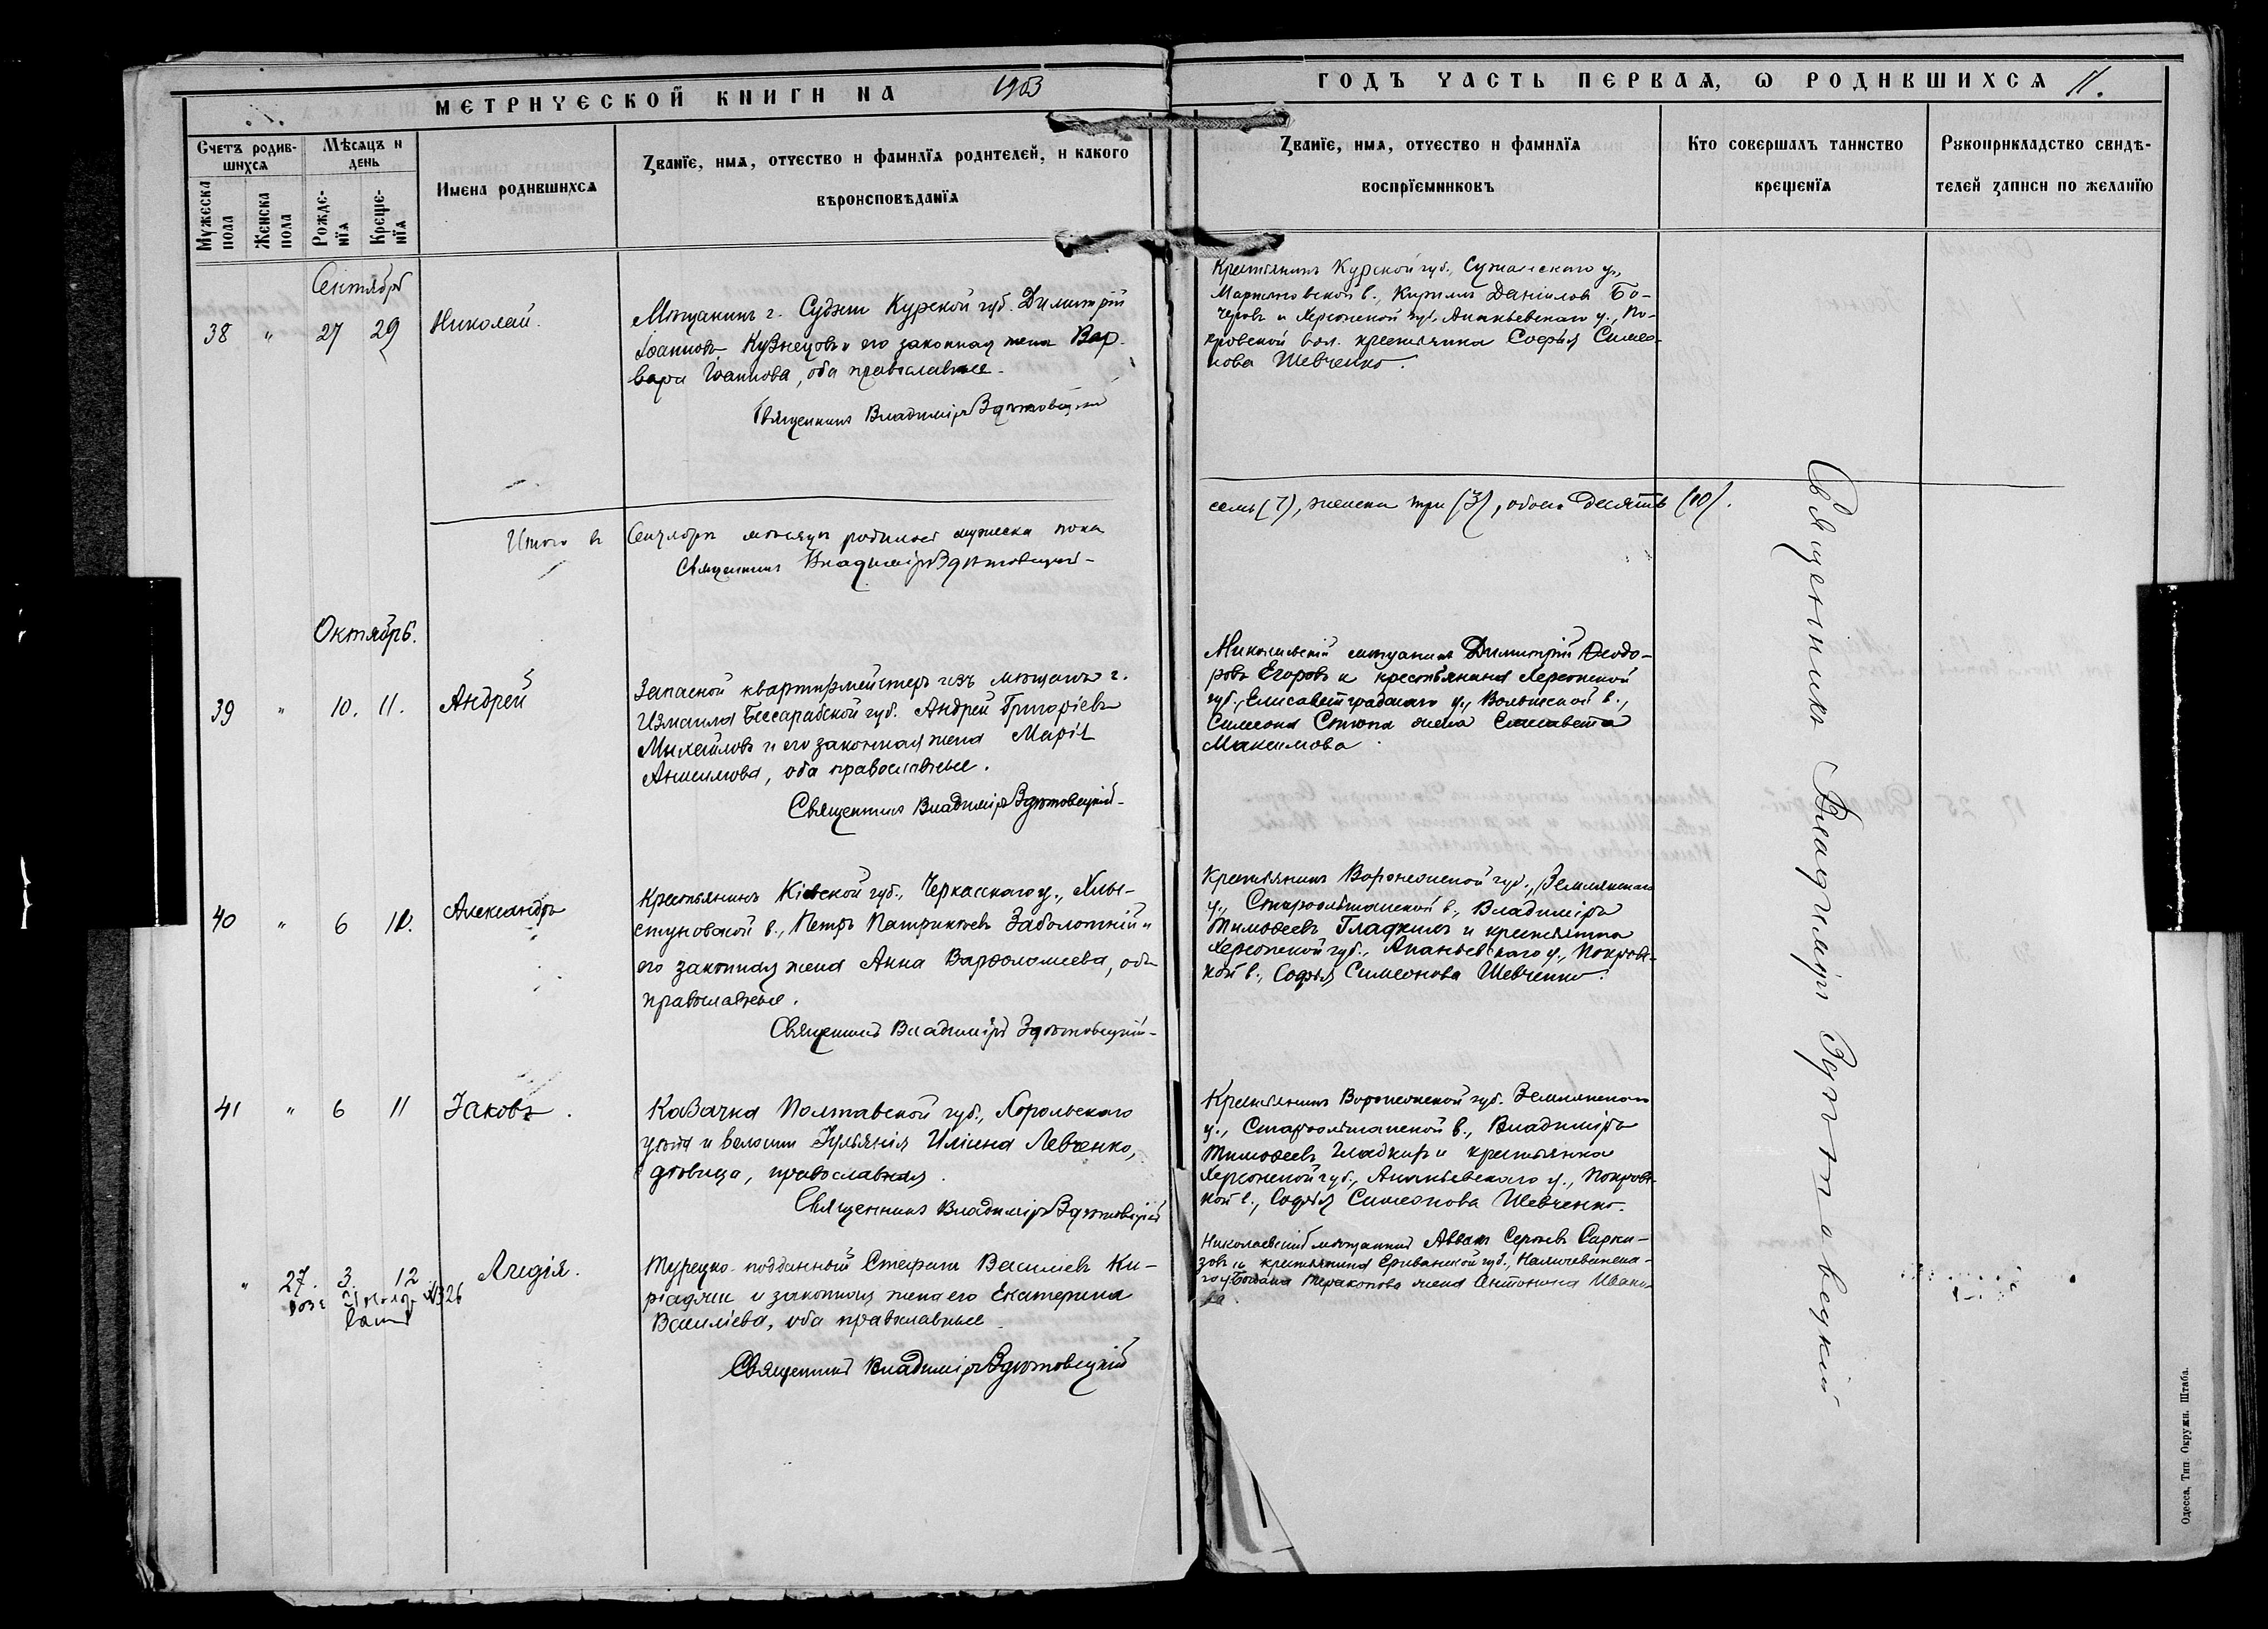 МЕТРИЧЕСКОЙ КНИГИ НА 1903
ГОДЪ ЧАСТЬ ПЕРВАЯ, Ѡ РОДИВШИХСЯ 11.
Счетъ родив-
шихся
Мужеска пола
Женска пола
Мѣсяцъ и
день
Рожде-
нїя
Креще-
нїя
Имена родившихся
Званїе, имя, отчество и фамилїя родителей, и какого
вѣроисповѣданїя
Званїе, имя, отчество и фамилїя
воспрїемниковъ
Кто совершалъ таинство
крещенїя
Рукоприкладство свидѣ-
телей записи по желанїю
Сентябрь
38 " 27 29 Николай.
Мѣщанинъ г. Суджи Курской губ. Димитрій
Іоанновъ Кузнецовъ и его законная жена Вар-
вара Іоаннова, оба православные.
Священникъ Владиміръ Здѣтовецкій
Крестьянинъ Курской губ., у.,
в., Кириллъ Даніиловъ Бо-
и Херсонской губ. Ананьевскаго у., По-
кровской вол. крестьянка Софья Симео-
нова Шевченко.
Итого въ Сентябрѣ мѣсяцѣ родилось мужеска пола
семь (7), женска три (3), обоего десять (10).
Священникъ Владиміръ Здѣтовецкій
Октябрь.
39 " 10. 11. Андрей
Запасной квартирмейстеръ изъ мѣщанъ г.
Измаила Бессарабской губ. Андрей Григоріевъ
Михайловъ и его законная жена Марія
Анисимова, оба православные.
Священникъ Владиміръ Здѣтовецкій
мѣщанинъ Димитрій Ѳеодо-
ровъ Егоровъ и крестьянина Херсонской
губ., Елисаветградскаго у., в.,
Симеона жена Елисавета
Максимова
40 " 6 10. Александръ
Крестьянинъ Кіевской губ., Черкасскаго у., Хлы-
стуновской в., Петръ Патрикіевъ Заболотній и
его законная жена Анна Варѳоломеева, оба
православные.
Священникъ Владиміръ Здѣтовецкій
Крестьянинъ Воронежской губ., Землянскаго
у., Староольшанской в., Владиміръ
Тимоѳеевъ Гладкихъ и крестьянка
Херсонской губ., Ананьевскаго у., Покровс-
кой в., Софья Симеонова Шевченко.
41 " 6 11 Іаковъ.
Казачка Полтавской губ., Хорольскаго
уѣзда и волости Іуліанія Иліина Левченко,
дѣвица, православная.
Священникъ Владиміръ Здѣтовецкій
Крестьянинъ Воронежской губ. Землянскаго
у., Староольшанской в., Владиміръ
Тимоѳеевъ Гладкихъ и крестьянка
Херсонской губ., Ананьевскаго у., Покровс-
кой в., Софья Симеонова Шевченко.
" 27. 3. 12 Лидія.
№326
Турецко-подданный Стефанъ Василіевъ Ки-
ріаджи и законная жена его Екатерина
Василіева, оба православные
Священникъ Владиміръ Здѣтовецкій
Николаевскій мѣщанинъ Сергѣевъ Сарки-
зовъ и крестьянина Эриванской губ.,
жена Антонина Ивано-
ва.
Священникъ Владиміръ Здѣтовецкій
Одесса, Тип. Окружн. Штаба.